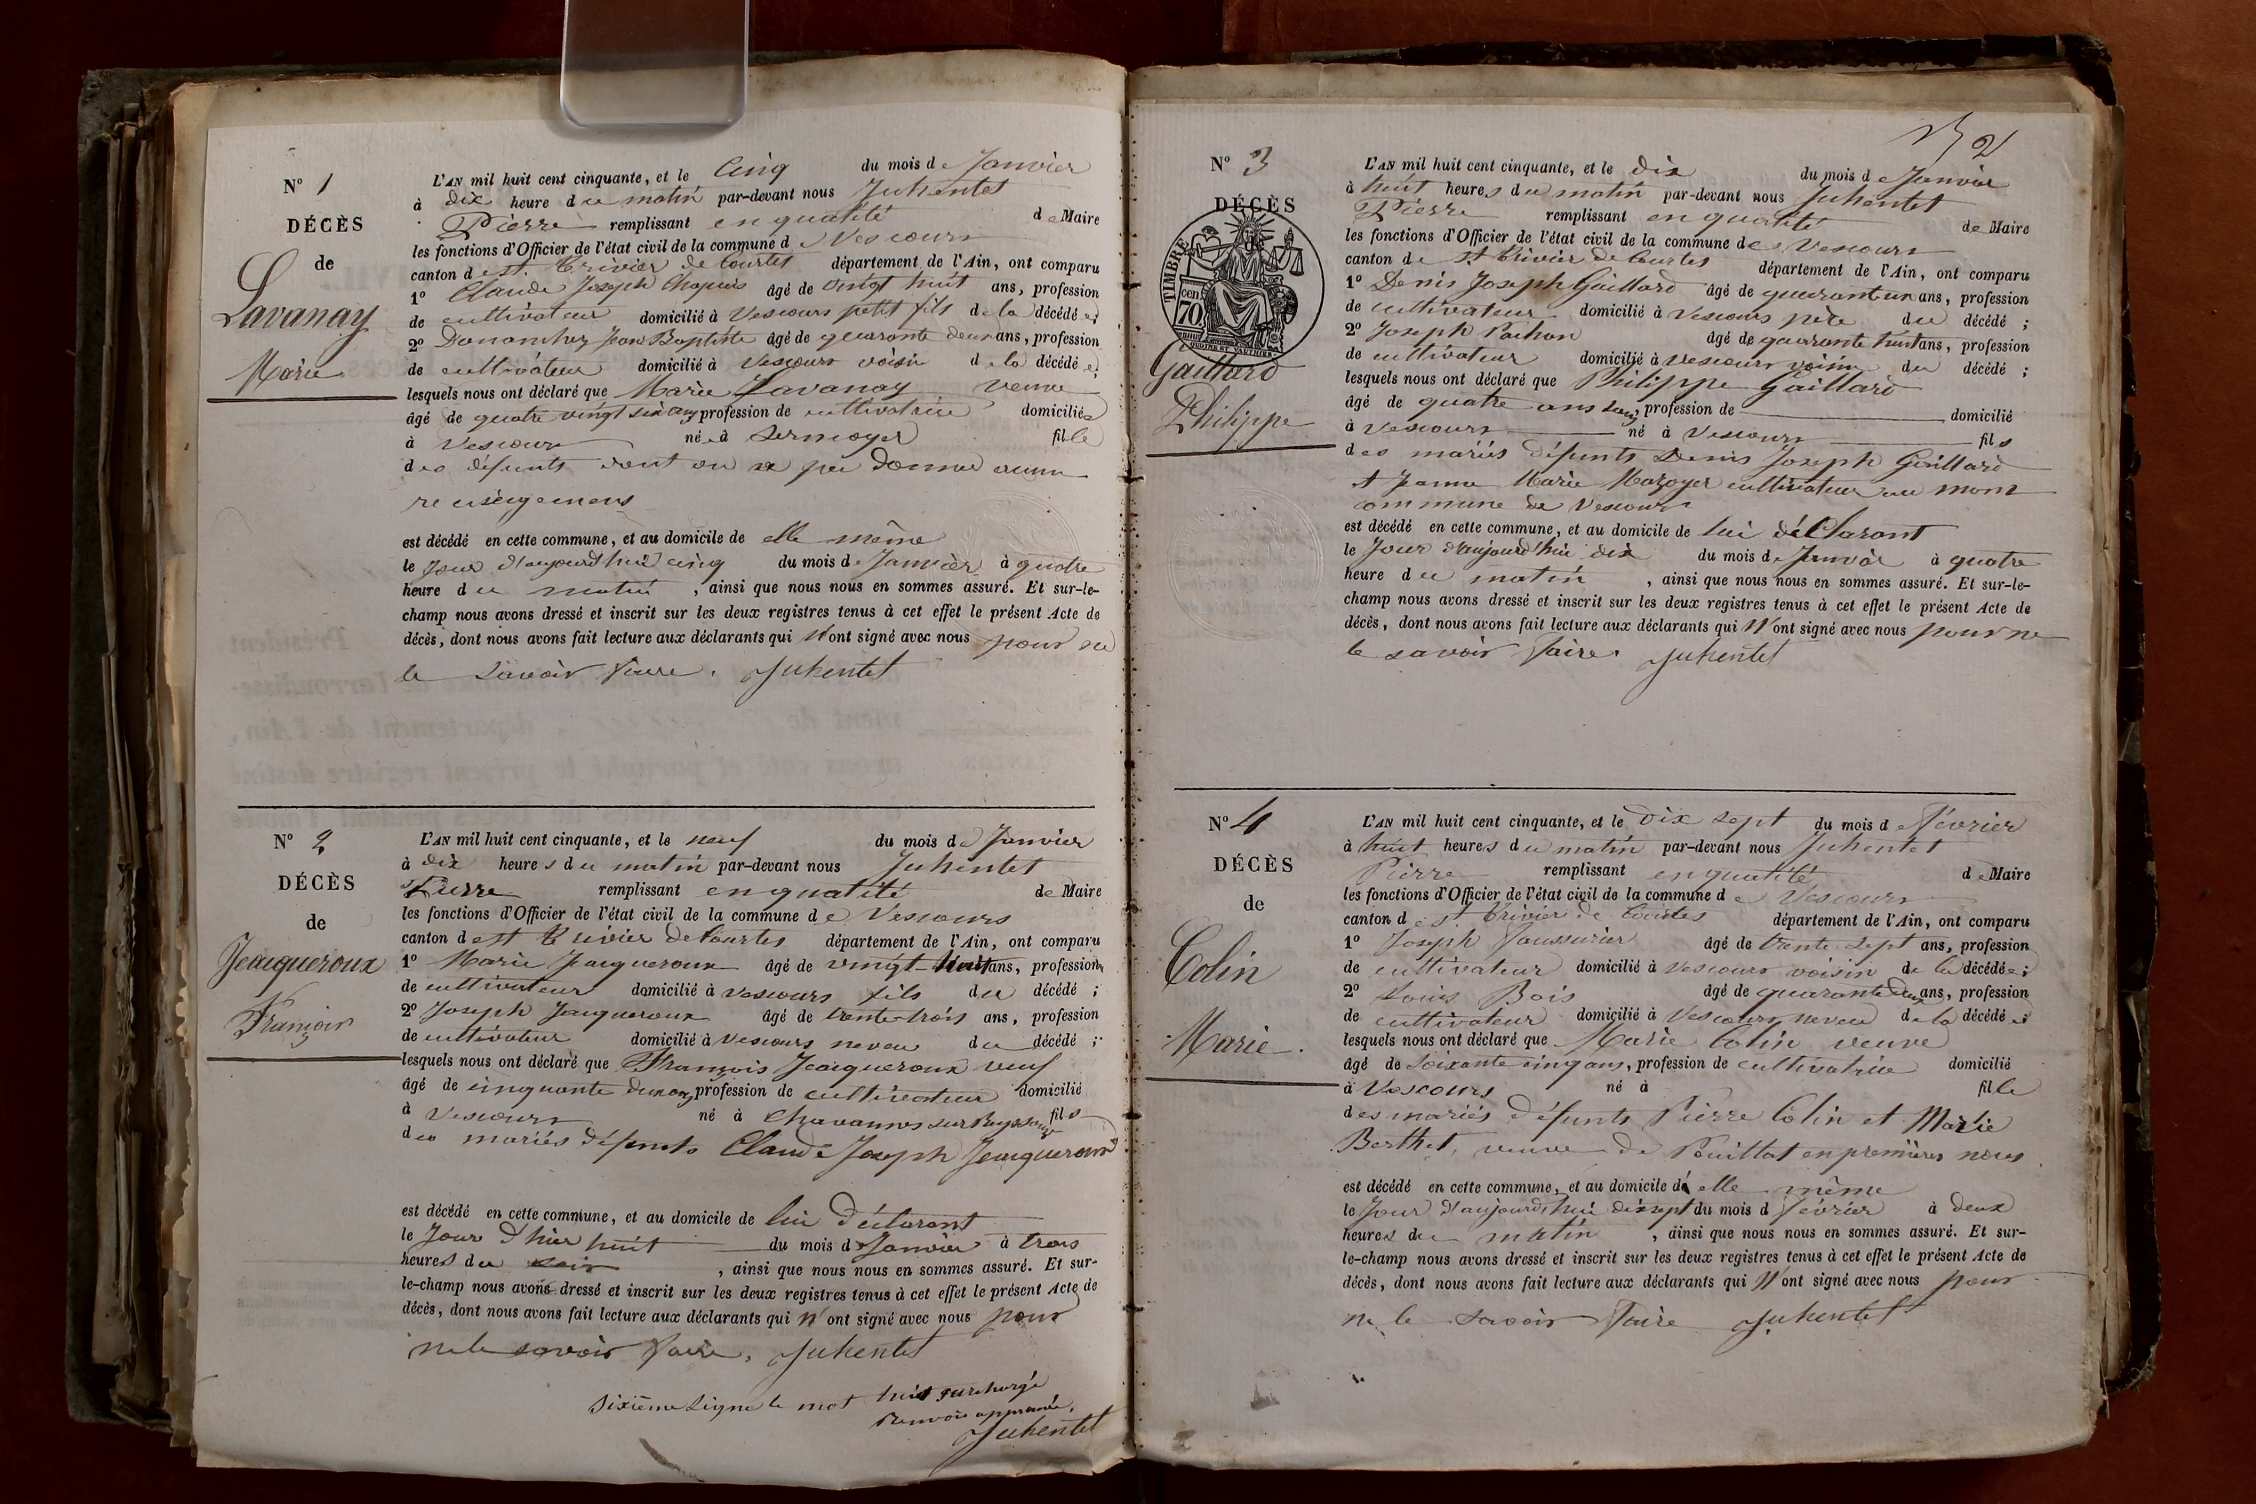 N° 1
DÉCÈS
de
Lavanay
Marie
L'AN mil huit cent cinquante, et le Cinq du mois de Janvier
à dix heure du matin par-devant nous Juhentet
Pierre remplissant en qualité de Maire
les fonctions d'Officier de l'état civil de la commune de Vescours
canton de St. Trivier de Courtes département de l'Ain, ont comparu
1° Claude Joseph Chapuis âgé de vingt huit ans, profession
de cultivateur domicilié à Vescours petit fils de la décédée;
2° Jean Baptiste âgé de quarante deux ans, profession
de cultivateur domicilié à Vescours voisin de la décédée;
lesquels nous ont déclaré que Marie Lavanay veuve
âgé de quatre vingt six ans profession de cultivatrice domiciliée
à Vescours née à Sermoyer fille
des défunts dont on n'a peu donné aucun
renseigemens
est décédé en cette commune, et au domicile de elle même
le Jour d'aujourd'hui cinq du mois de Janvier à quatre
heure du matin, ainsi que nous nous en sommes assuré. Et sur-le-
champ nous avons dressé et inscrit sur les deux registres tenus à cet effet le présent Acte de
décès, dont nous avons fait lecture aux déclarants qui N'ont signé avec nous pour ne
le savoir faire. Juhentet
N° 2
DÉCÈS
de
Jeacqueroux
François
L'AN mil huit cent cinquante, et le neuf du mois de Janvier
à dix heures du matin par-devant nous Juhentet
Pierre remplissant en qualité de Maire
les fonctions d'Officier de l'état civil de la commune de Vescours
canton de St Trivier de Courtes département de l'Ain, ont comparu
1° Marie Jacqueroux âgé de vingt-huit ans, profession
de cultivateur domicilié à Vescours fils du décédé;
2° Joseph Jacqueroux âgé de trente-trois ans, profession
de cultivateur domicilié à Vescours neveu du décédé;
lesquels nous ont déclaré que François Jeacqueroux veuf
âgé de cinquante deux ans, profession de cultivateur domicilié
à Vescours né à Chavannes sur Reyssouze fils
des mariés défunts Claude Joseph Jeacqueroux
est décédé en cette commune, et au domicile de lui déclarant
le Jour d'hier huit du mois de Janvier à trois
heures du soir, ainsi que nous nous en sommes assuré. Et sur-
le-champ nous avons dressé et inscrit sur les deux registres tenus à cet effet le présent Acte de
décès, dont nous avons fait lecture aux déclarants qui N'ont signé avec nous pour
ne le savoir faire. Juhentet
Sixième Ligne le mot huit surchargé
Renvois approuvé.
Juhentet
N° 3
DÉCÈS
TIMBRE
70 cen
Gaillard
Philippe
L'AN mil huit cent cinquante, et le dix du mois de Janvier
à huit heures du matin par-devant nous Juhentet
Pierre remplissant en qualité de Maire
les fonctions d'Officier de l'état civil de la commune de Vescours
canton de St Trivier de Courtes département de l'Ain, ont comparu
1° Denis Joseph Gaillard âgé de quarant un ans, profession
de cultivateur domicilié à Vescours père du décédé;
2° Joseph Pachon âgé de quarante huit ans, profession
de cultivateur domicilié à Vescours voisin du décédé;
lesquels nous ont déclaré que Philippe Gaillard
âgé de quatre ans, profession de domicilié
à Vescours né à Vescours fils
des mariés défunts Denis Joseph Gaillard
et Jeanne Marie Mazoyer cultivateur au mont
commune de Vescours
est décédé en cette commune, et au domicile de lui déclarant
le Jour d'aujourd'hui dix du mois de Janvier à quatre
heure du matin, ainsi que nous nous en sommes assuré. Et sur-le-
champ nous avons dressé et inscrit sur les deux registres tenus à cet effet le présent Acte de
décès, dont nous avons fait lecture aux déclarants qui N'ont signé avec nous pour ne
le savoir faire. Juhentet
N° 4
DÉCÈS
de
Colin
Marie.
L'AN mil huit cent cinquante, et le dix sept du mois de Février
à huit heures du matin par-devant nous Juhentet
Pierre remplissant en qualité de Maire
les fonctions d'Officier de l'état civil de la commune de Vescours
canton de St Trivier de Courtes département de l'Ain, ont comparu
1° Joseph Joussurier âgé de trente sept ans, profession
de cultivateur domicilié à Vescours voisin de la décédée;
2° Louis Bois âgé de quarante deux ans, profession
de cultivateur domicilié à Vescours neveu de la décédée
lesquels nous ont déclaré que Marie Colin veuve
âgé de Soixante cinq ans, profession de cultivatrice domicilié
à Vescours né à fille
des mariés défunts Pierre Colin et Marie
Berthet, veuve de Pouillat en premières noces
est décédé en cette commune, et au domicile de elle même
le Jour d'aujourd'hui dix sept du mois d Février à deux
heures du matin, ainsi que nous nous en sommes assuré. Et sur-
le-champ nous avons dressé et inscrit sur les deux registres tenus à cet effet le présent Acte de
décès, dont nous avons fait lecture aux déclarants qui N'ont signé avec nous pour
ne le savoir faire Juhentet